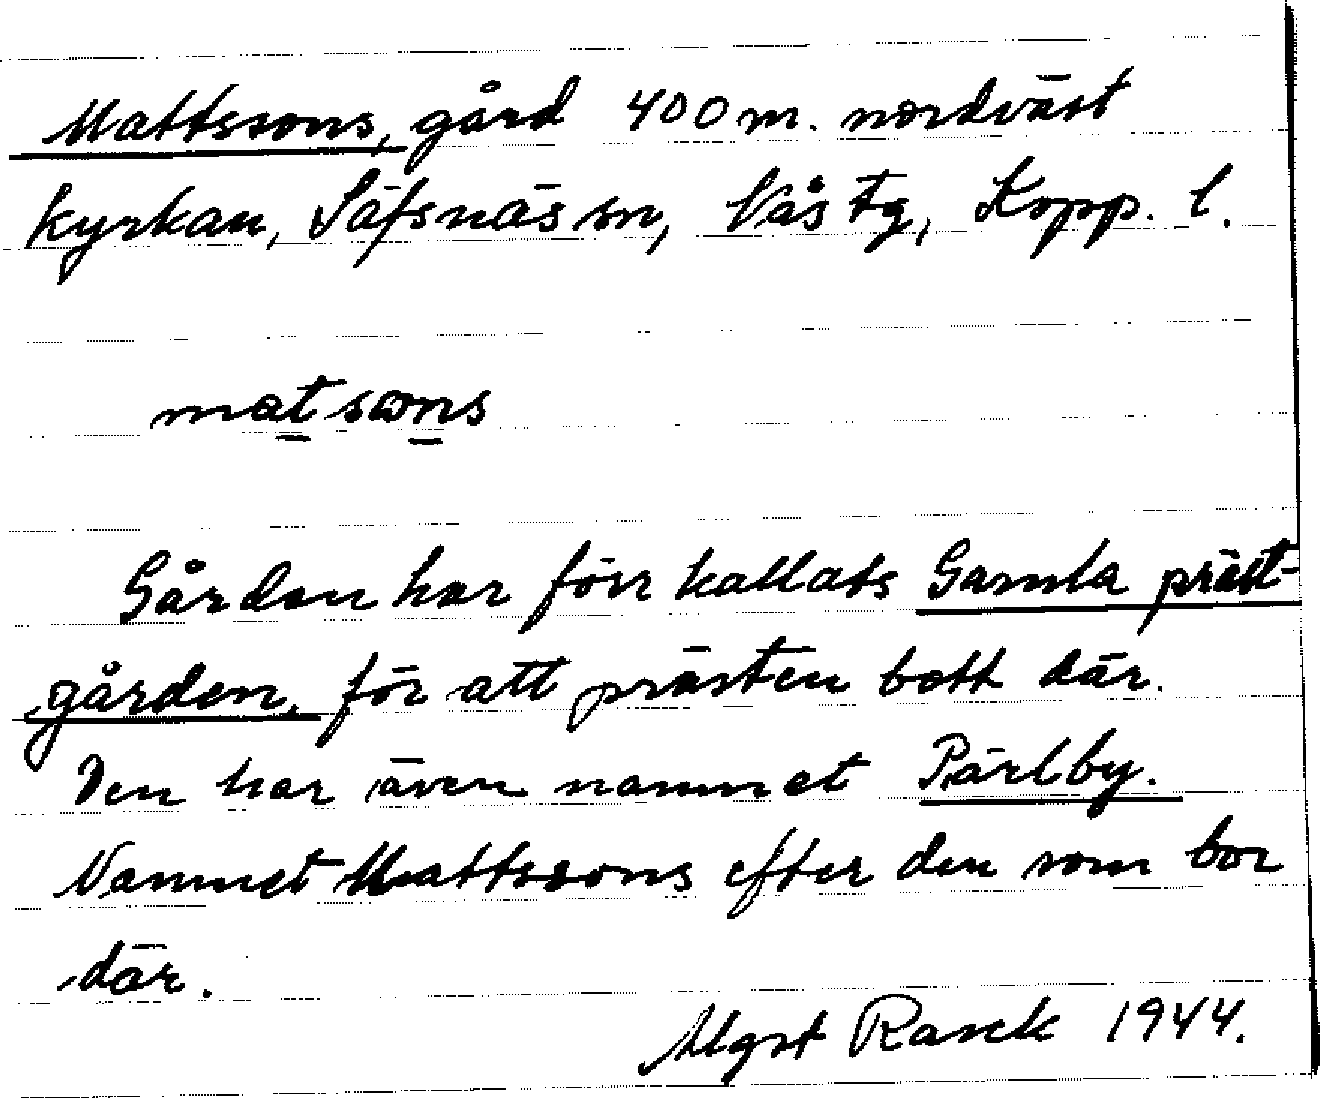 Mattssons, gård 400 m. nordväst
kyrkan, Säfsnäs sn, Vås tg, Kopp. l.
matsons
Gården har förr kallats Gamla präst-
gården, för att prästen bott där.
Den har även namnet Pärlby.
Namnet Mattssons efter den som bor
där.
Mgrt Rasck 1944.